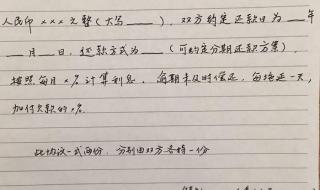 人民币×××元整(大写____),双方约定还款日为____年
____月____日,还款方式为____(可约定分期还款方案),
按照每月×%计算利息。逾期未及时偿还,每拖延一天,
加付欠款的×%.
此协议一式两份,分别由双方各持一份